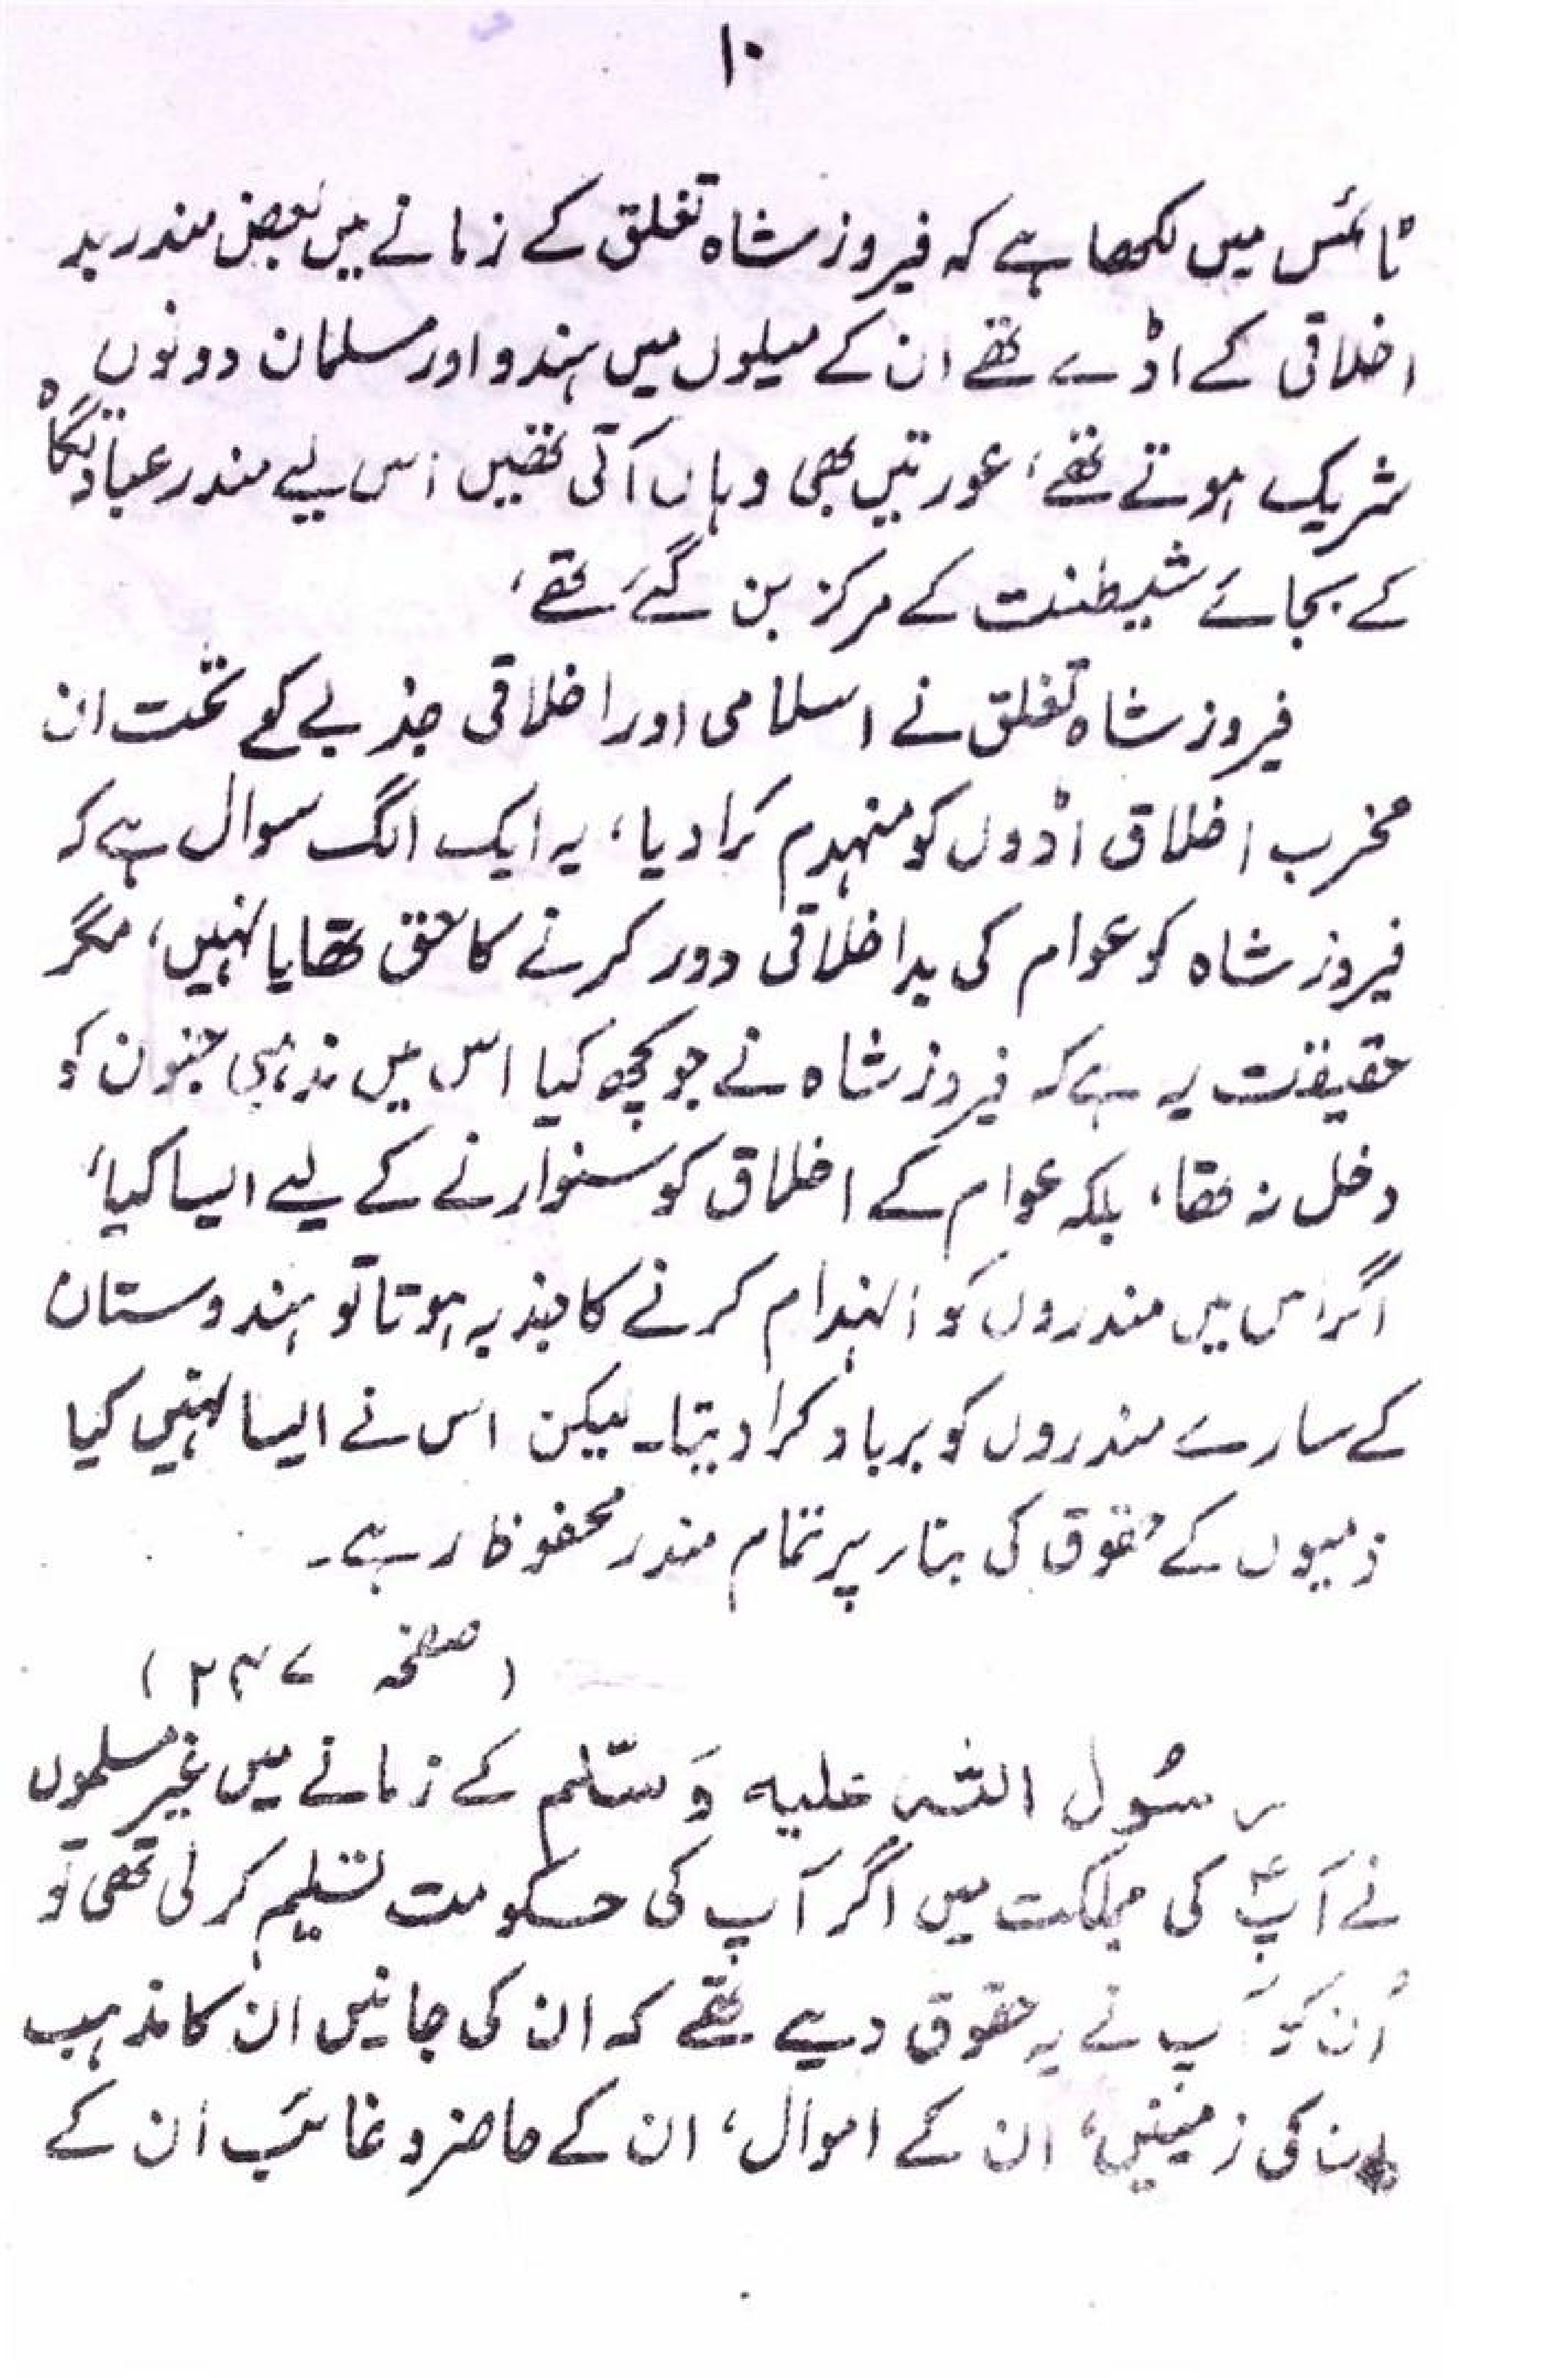 ۱۰
ٹائمس میں لکھا ہے کہ فیروز شاہ تغلق کے زمانے میں بعض مندر بد
اخلاقی کے اڈے تھے ان کے میلوں میں ہندو اور مسلمان دونوں
شریک ہوتے تھے، عورتیں بھی وہاں آتی تھیں اس لیے مندر عبادتگاہ
کے بجائے شیطنت کے مرکز بن گئے تھے،
فیروز شاہ تغلق نے اسلامی اور اخلاقی جذبے کے تحت ان
مخرب اخلاق اڈوں کو منہدم کرا دیا، یہ ایک الگ سوال ہے کہ
فیروز شاہ کو عوام کی بداخلاقی دور کرنے کا حق تھا یا نہیں، مگر
حقیقت یہ ہے کہ فیروز شاہ نے جو کچھ کیا اس میں مذہبی جنون کو
دخل نہ تھا، بلکہ عوام کے اخلاق کو سنوارنے کے لیے ایسا کیا،
اگر اس میں مندروں کو انہدام کرنے کا جذبہ ہوتا تو ہندوستان
کے سارے مندروں کو برباد کرا دیتا۔ لیکن اس نے ایسا نہیں کیا
ذمیوں کے حقوق کی بناء پر تمام مندر محفوظ رہے۔
(صفحہ ۲۴۷)
رسُول اللہ علیہ وَسلّم کے زمانے میں غیر مسلموں
نے آپؐ کی مملکت میں اگر آپ کی حکومت تسلیم کر لی تھی تو
اُن کو آپ نے یہ حقوق دیے تھے کہ ان کی جانیں ان کا مذہب
ان کی زمینیں، ان کے اموال، ان کے حاضر و غائب اُن کے